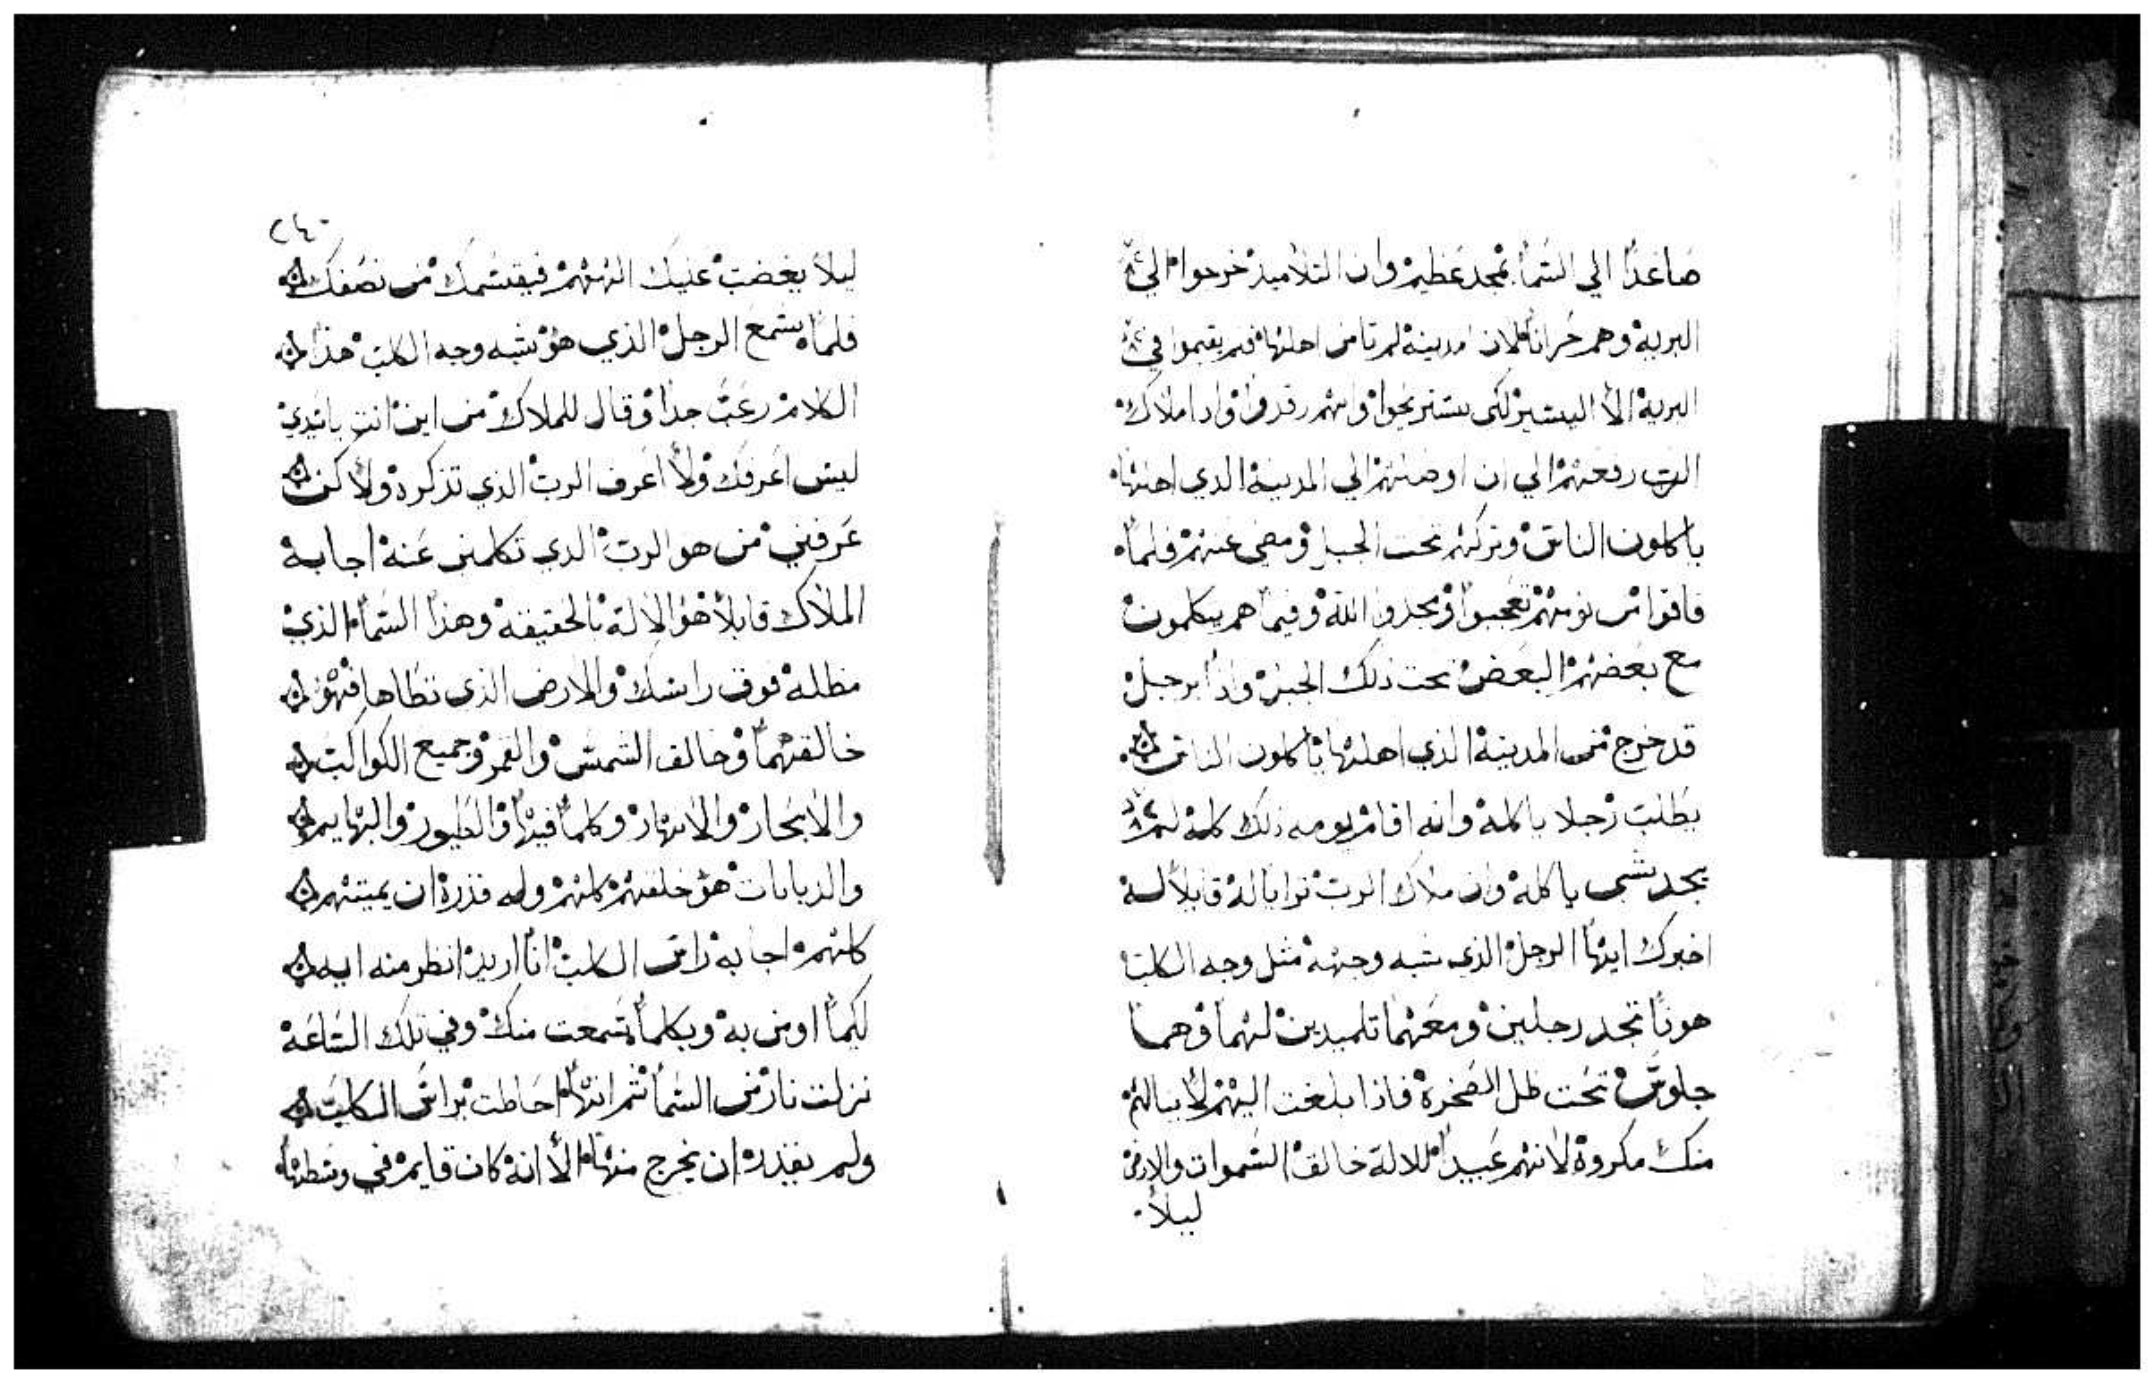 صاعدًا الي السما بمجد عظيم وان التلاميذ خرجوا الي
البرية وهم حزانا لان مدينة لم تامن اهلها فلم يقيموا في
البرية الا اليسير لكي يستريحوا وانهم رقدوا واذا ملاك
الرب رفعهم الي ان اوصلهم الي المدينة الذي اهلها
ياكلون الناس وتركهم تحت الجبل ومضي عنهم فلما
فاقوا من نومهم تعجبوا ومجدوا الله وفيما هم يتكلمون
مع بعضهم البعض تحت ذلك الجبل واذا برجل
قد خرج من المدينة الذي اهلها ياكلون الناس
يطلب رجلا ياكله وانه اقام يومه ذلك كله لم
يجد شي ياكله وان ملاك الرب ترايا له قايلا له
اخبرك ايها الرجل الذي شبه وجهه مثل وجه الكلب
هونا تجد رجلين ومعهما تلميدين لهما وهما
جلوس تحت ظل الصخرة فاذا بلغت اليهم لا ينالهم
منك مكروة لانهم عبيد للالة خالق السموات والارض
ليلا
٢٤٠
ليلا يغضب عليك الههم فيقسمك من نصفك
فلما سمع الرجل الذي هو شبه وجه الكلب هذا
الكلام رعب جدا وقال للملاك من اين انت ياسيدي
ليس اعرفك ولا اعرف الرب الذي تذكره ولاكن
عرفني من هو الرب الدي تكلمني عنه اجابه
الملاك قايلا هو الالة بالحقيقه وهذا السما الذي
مظله فوق راسك والارض الذي تطاها فهو
خالقهما وخالق الشمس والقمر وجميع الكواكب
والابحار والانهار وكلما فيها والطيور والبهايم
والدبابات هو خلقهم كلهم وله قدرة ان يميتهم
كلهم اجابه راس الكلب انا اريد انظر منه ايه
لكيما اومن به وبكلما سمعت منك وفي تلك الساعة
نزلت نار من السما ثم انها احاطت براس الكلب
ولم يقدر ان يخرج منها الا انه كان قايم في وسطها